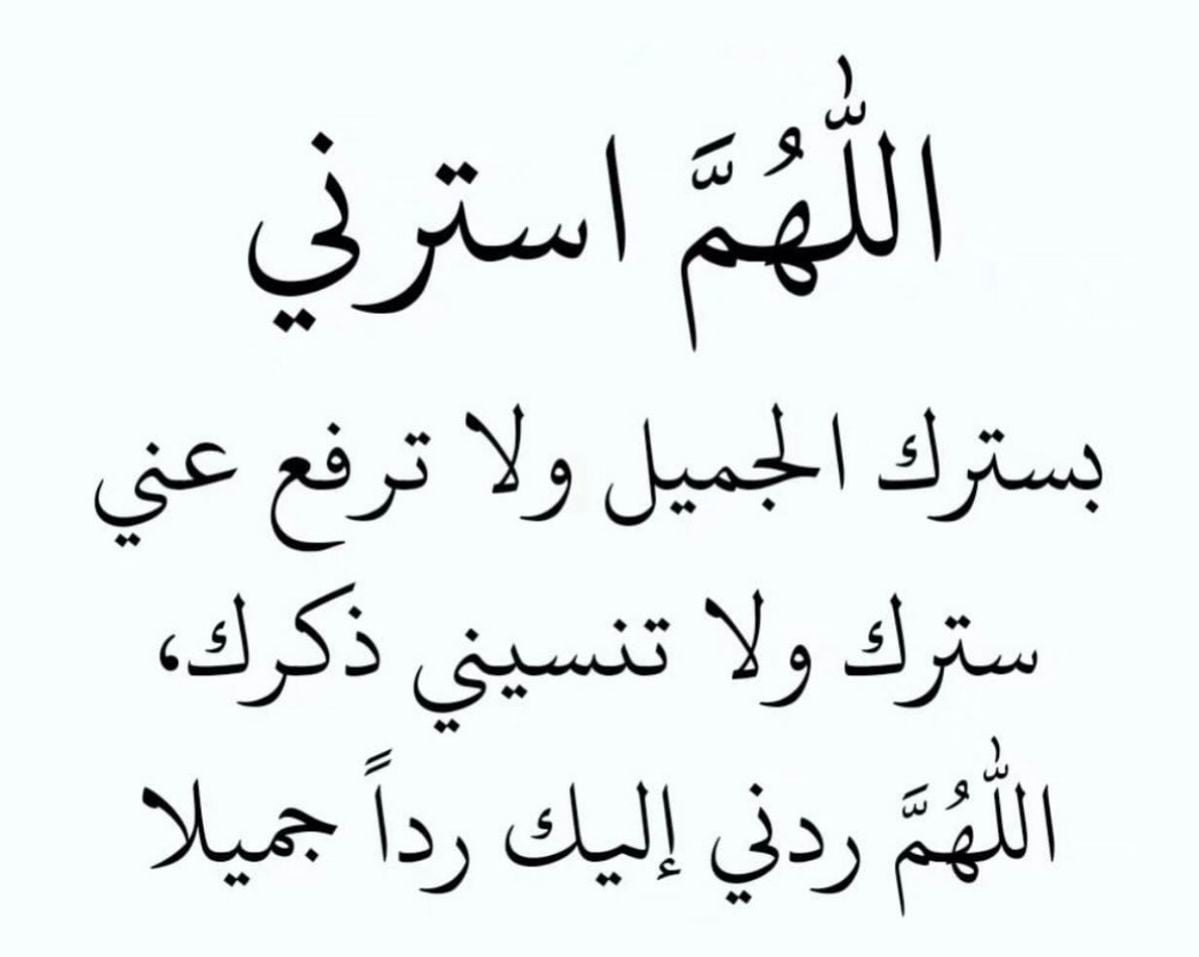 اللّٰهُمَّ استرني
بسترك الجميل ولا ترفع عني
سترك ولا تنسيني ذكرك،
اللّٰهُمَّ ردني إليك رداً جميلا